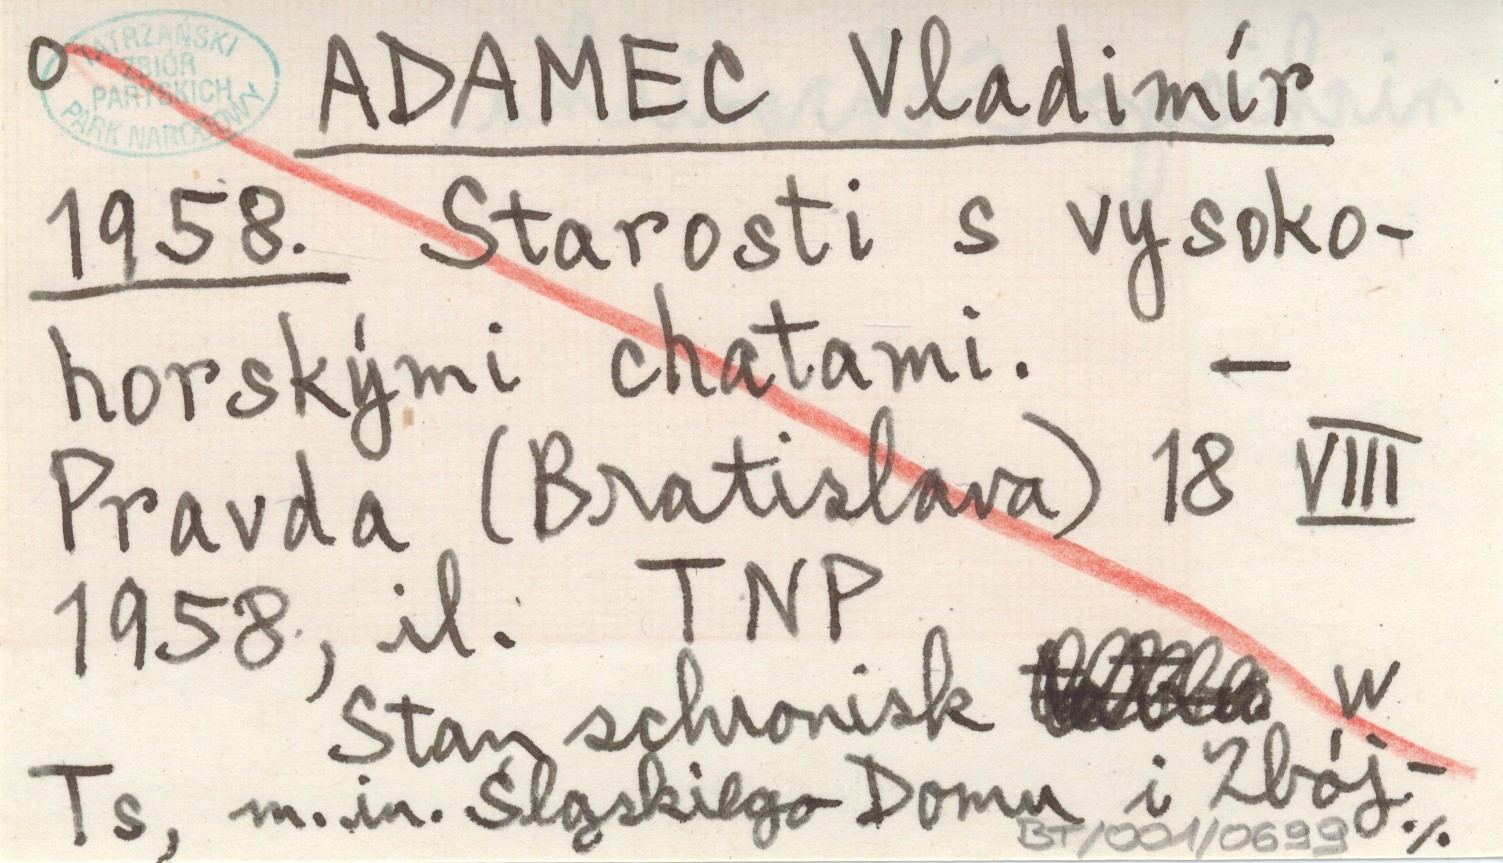 o
TATRZAŃSKI
ZBIÓR
PARYSKICH
PARK NARODOWY
ADAMEC Vladimír
1958. Starosti s vysoko-
horskými chatami. —
Pravda (Bratislava) 18 VIII
1958, il. TNP
Stan schronisk w
Ts, m.in. Śląskiego Domu i Zbój-
BT/001/0699 ./.